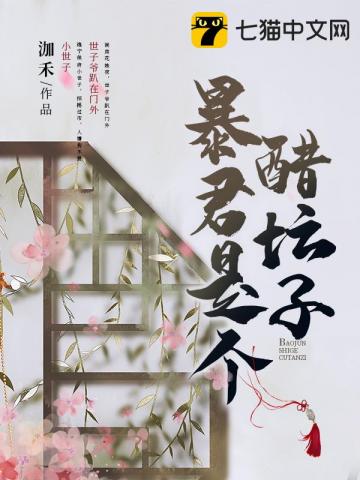 七猫中文网
暴君是个
醋坛子
BAOJUN
SHIGE
CUTANZI
世子爷趴在门外
小世子
泇禾/作品